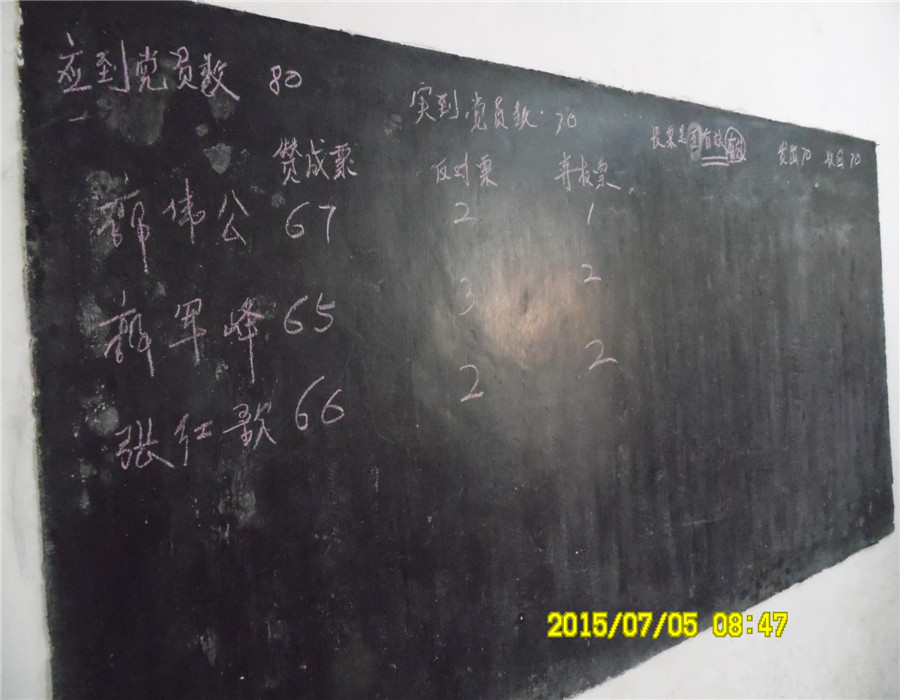 应到党员数 80
实到党员数 70
发出 70 收回 70
赞成票 反对票 弃权票
郭伟公 67 2 1
郭军峰 65 3 2
张红歌 66 2 2
2015/07/05 08:47